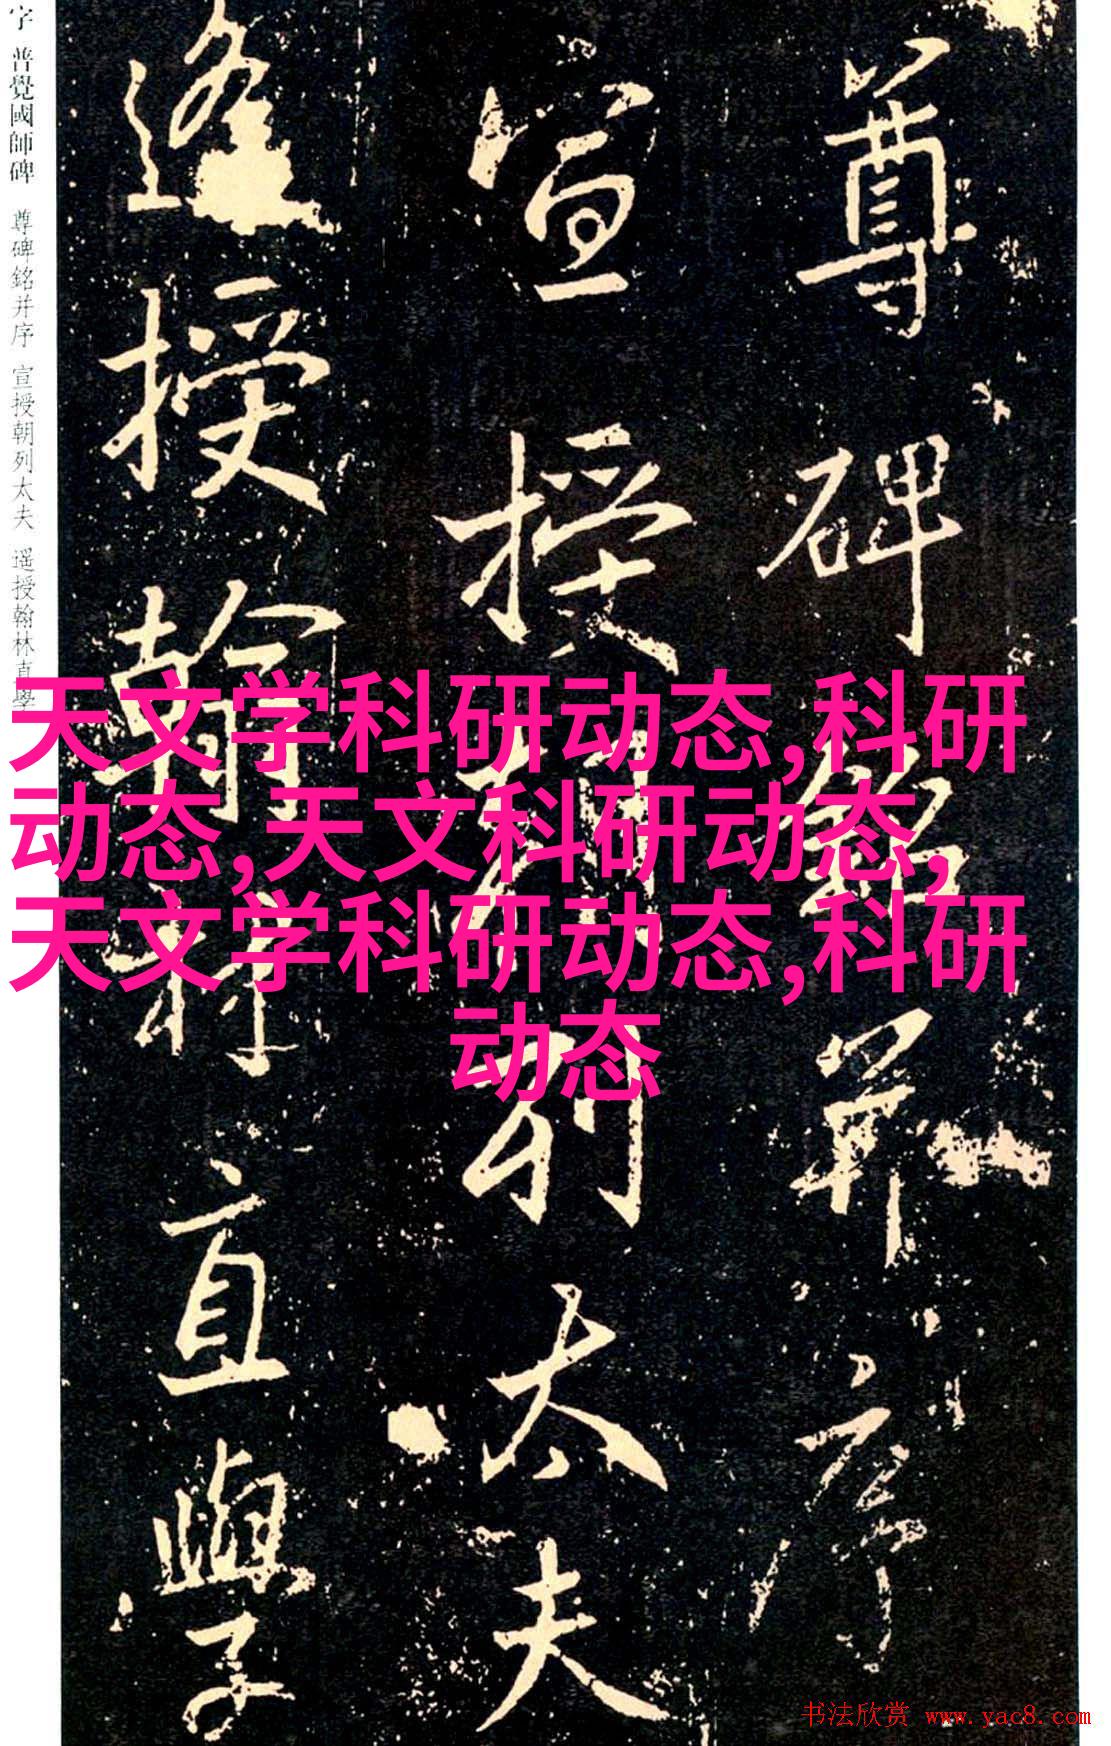 尊碑銘并序
宣授朝列太夫
遙授翰林直學
字 普覺國師碑 尊碑銘并序 宣授朝列太夫 遥授翰林直學
天文学科研动态,科研
动态,天文科研动态,
天文学科研动态,科研
动态
书法欣赏 www.yac8.com